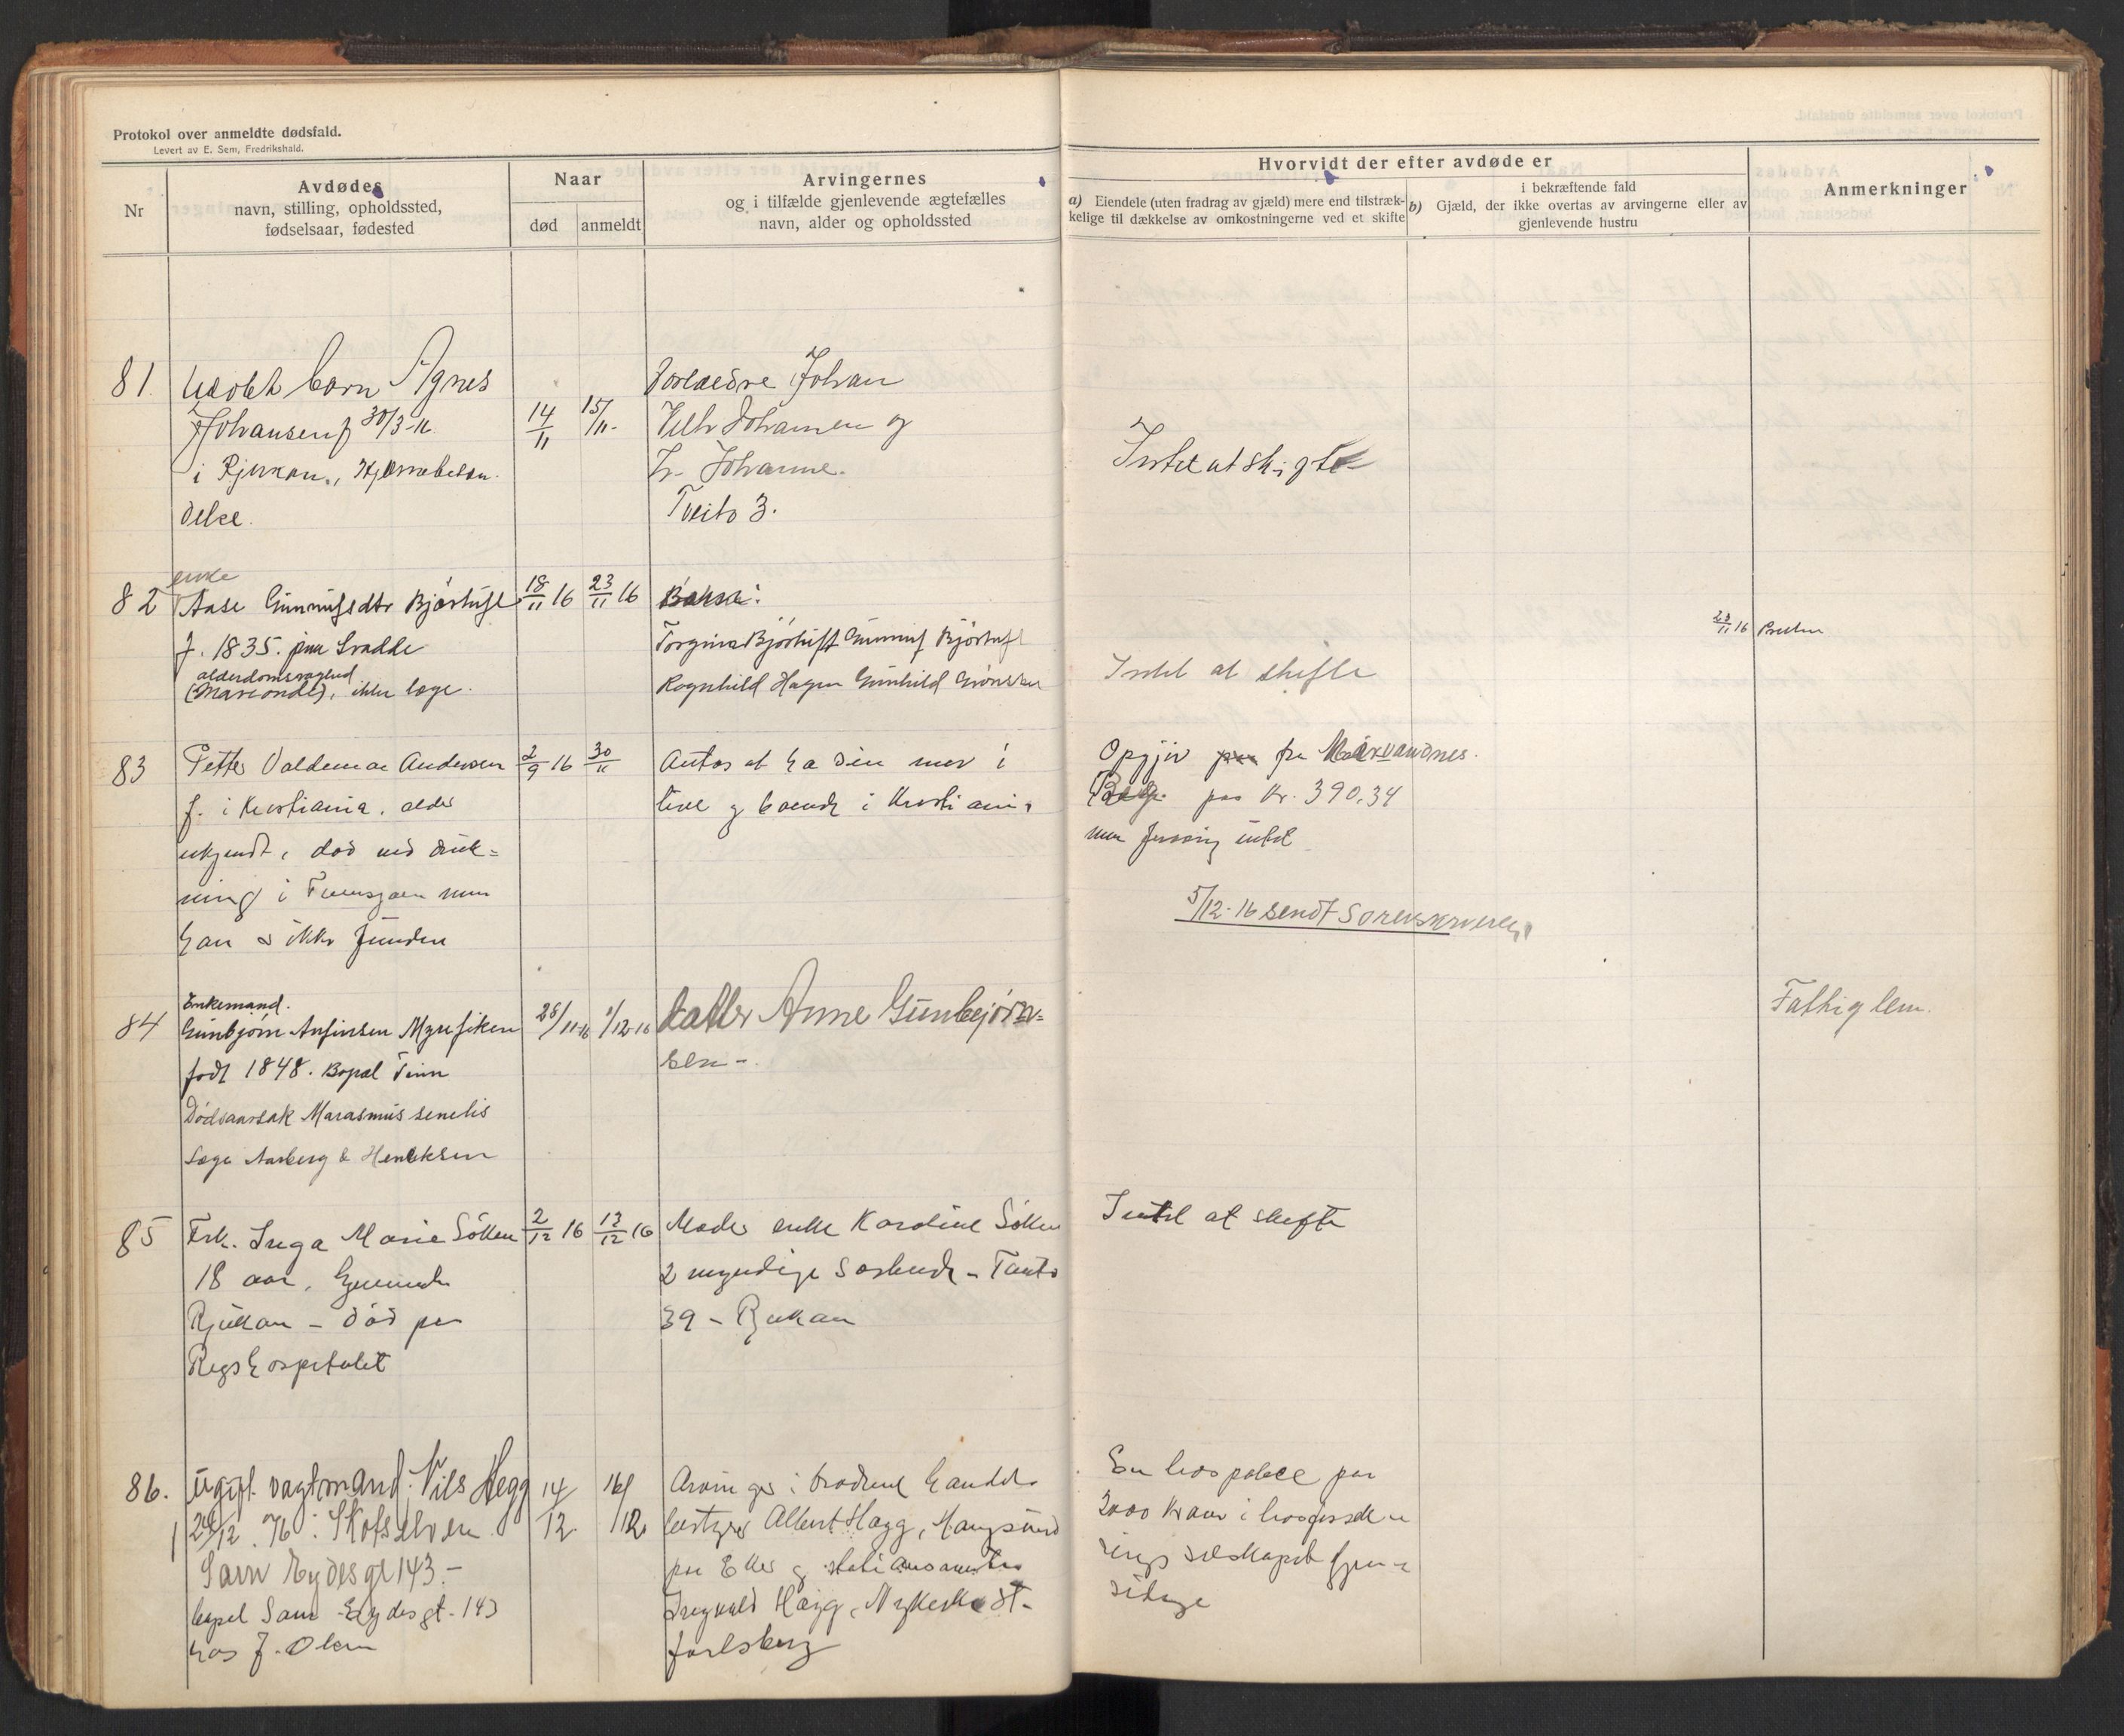 Protokol over anmeldte dødsfald.
Levert av E. Sem, Fredrikshald.
Nr
Avdødes
navn, stilling, opholdssted,
fødselsaar, fødested
Naar
død
anmeldt
Arvingernes
og i tilfælde gjenlevende ægtefælles
navn, alder og opholdssted
Hvorvidt der efter avdøde er
a) Eiendele (uten fradrag av gjæld) mere end tilstræk-
kelige til dækkelse av omkostningerne ved et skifte
b)
i bekræftende fald
Gjæld, der ikke overtas av arvingerne eller av
gjenlevende hustru
Anmerkninger
81. barn Agnes
Johansen f 30/3-16
i Rjukan.,
delse.
14/11
15/11-
Forældre Johan
Vilh Johansen og
h. Johanne.
Tveito 3.
Intet at skifte
enke
82 Aase Gunnufsdtr Bjørtuft
f. 1835. paa
alderdomssvaghed
ikke læge.
18/11 16
23/11 16
Barn:
Torgine Bjørtuft Gunnuf Bjørtuft
Ragnhild Hagen Gunhild
Intet at skifte
23/11 16
83 Petter Valdemar Andersen
f. i Kristiania, alder
ukjendt, død ved druk-
ning i men
han er ikke funden
2/9 16
30/11
Antas at ha sin mor i
live og boende i Kristiania
Opgjør fra Maarvandnes.
paa Kr. 390,34
men forøvrig intet
5/12-16 sendt Sorenskriveren
Enkemand.
84 Gunbjørn Anfinsen
født 1848. Bopæl Tinn
Dødsaarsak Marasmus senelis
Læge Aasberg & Henriksen
28/11-16
1/12-16
datter Anne Gunbjørn-
sen -
Fattiglem.
85 Frk. Inga Marie
18 aar,
Rjukan - død paa
Rigshospitalet
2/12 16
12/12 16
Moder enke Karoline
2 myndige -
39 - Rjukan
Intet at skifte
86. ugift vagtmand Nils Hegg
f 24/12 76 i Skotselven
Sam Eydes gt 143 -
bopæl Sam Eydes gt. 143
hos J. Olsen
14/12.
16/12.
Arvinger: brødrene handels-
bestyrer Albert Hagg,
paa Eker og
Ingvald Hagg,
Jarlsberg
En livspolice paa
2000 kroner i livsforsikr-
ings selskapet Gjen-
sidige